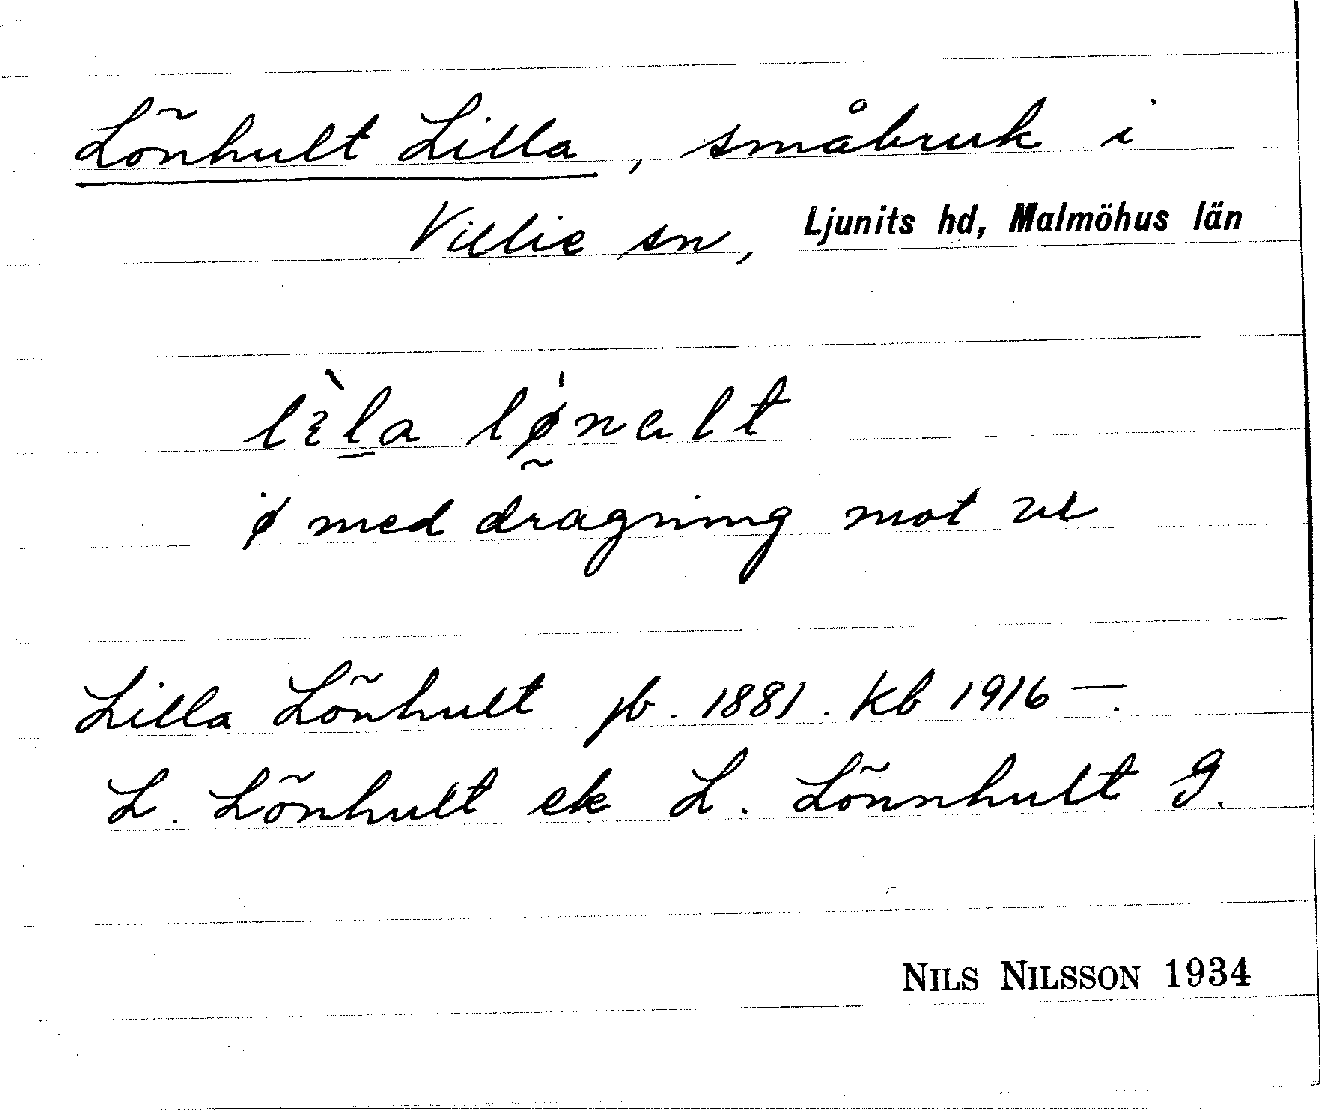 Lönhult Lilla, småbruk i
Villie sn, Ljunits hd, Malmöhus län
lìla lǿnalt
ø med dragning mot
Lilla Lönhult jb. 1881. Kb 1916 —.
L. Lönhult ek L. Lönnhult G.
NILS NILSSON 1934